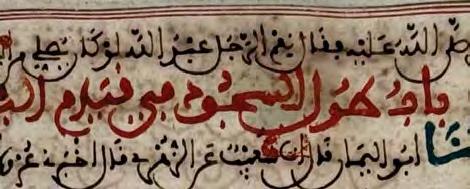 الله عليه فقال نعم الرجل عبد الله لو كان يصلي
باب طول السجود في قيام
ثنا ابو اليمان قال انا شعيب عن الزهري قال اخبرني عروة